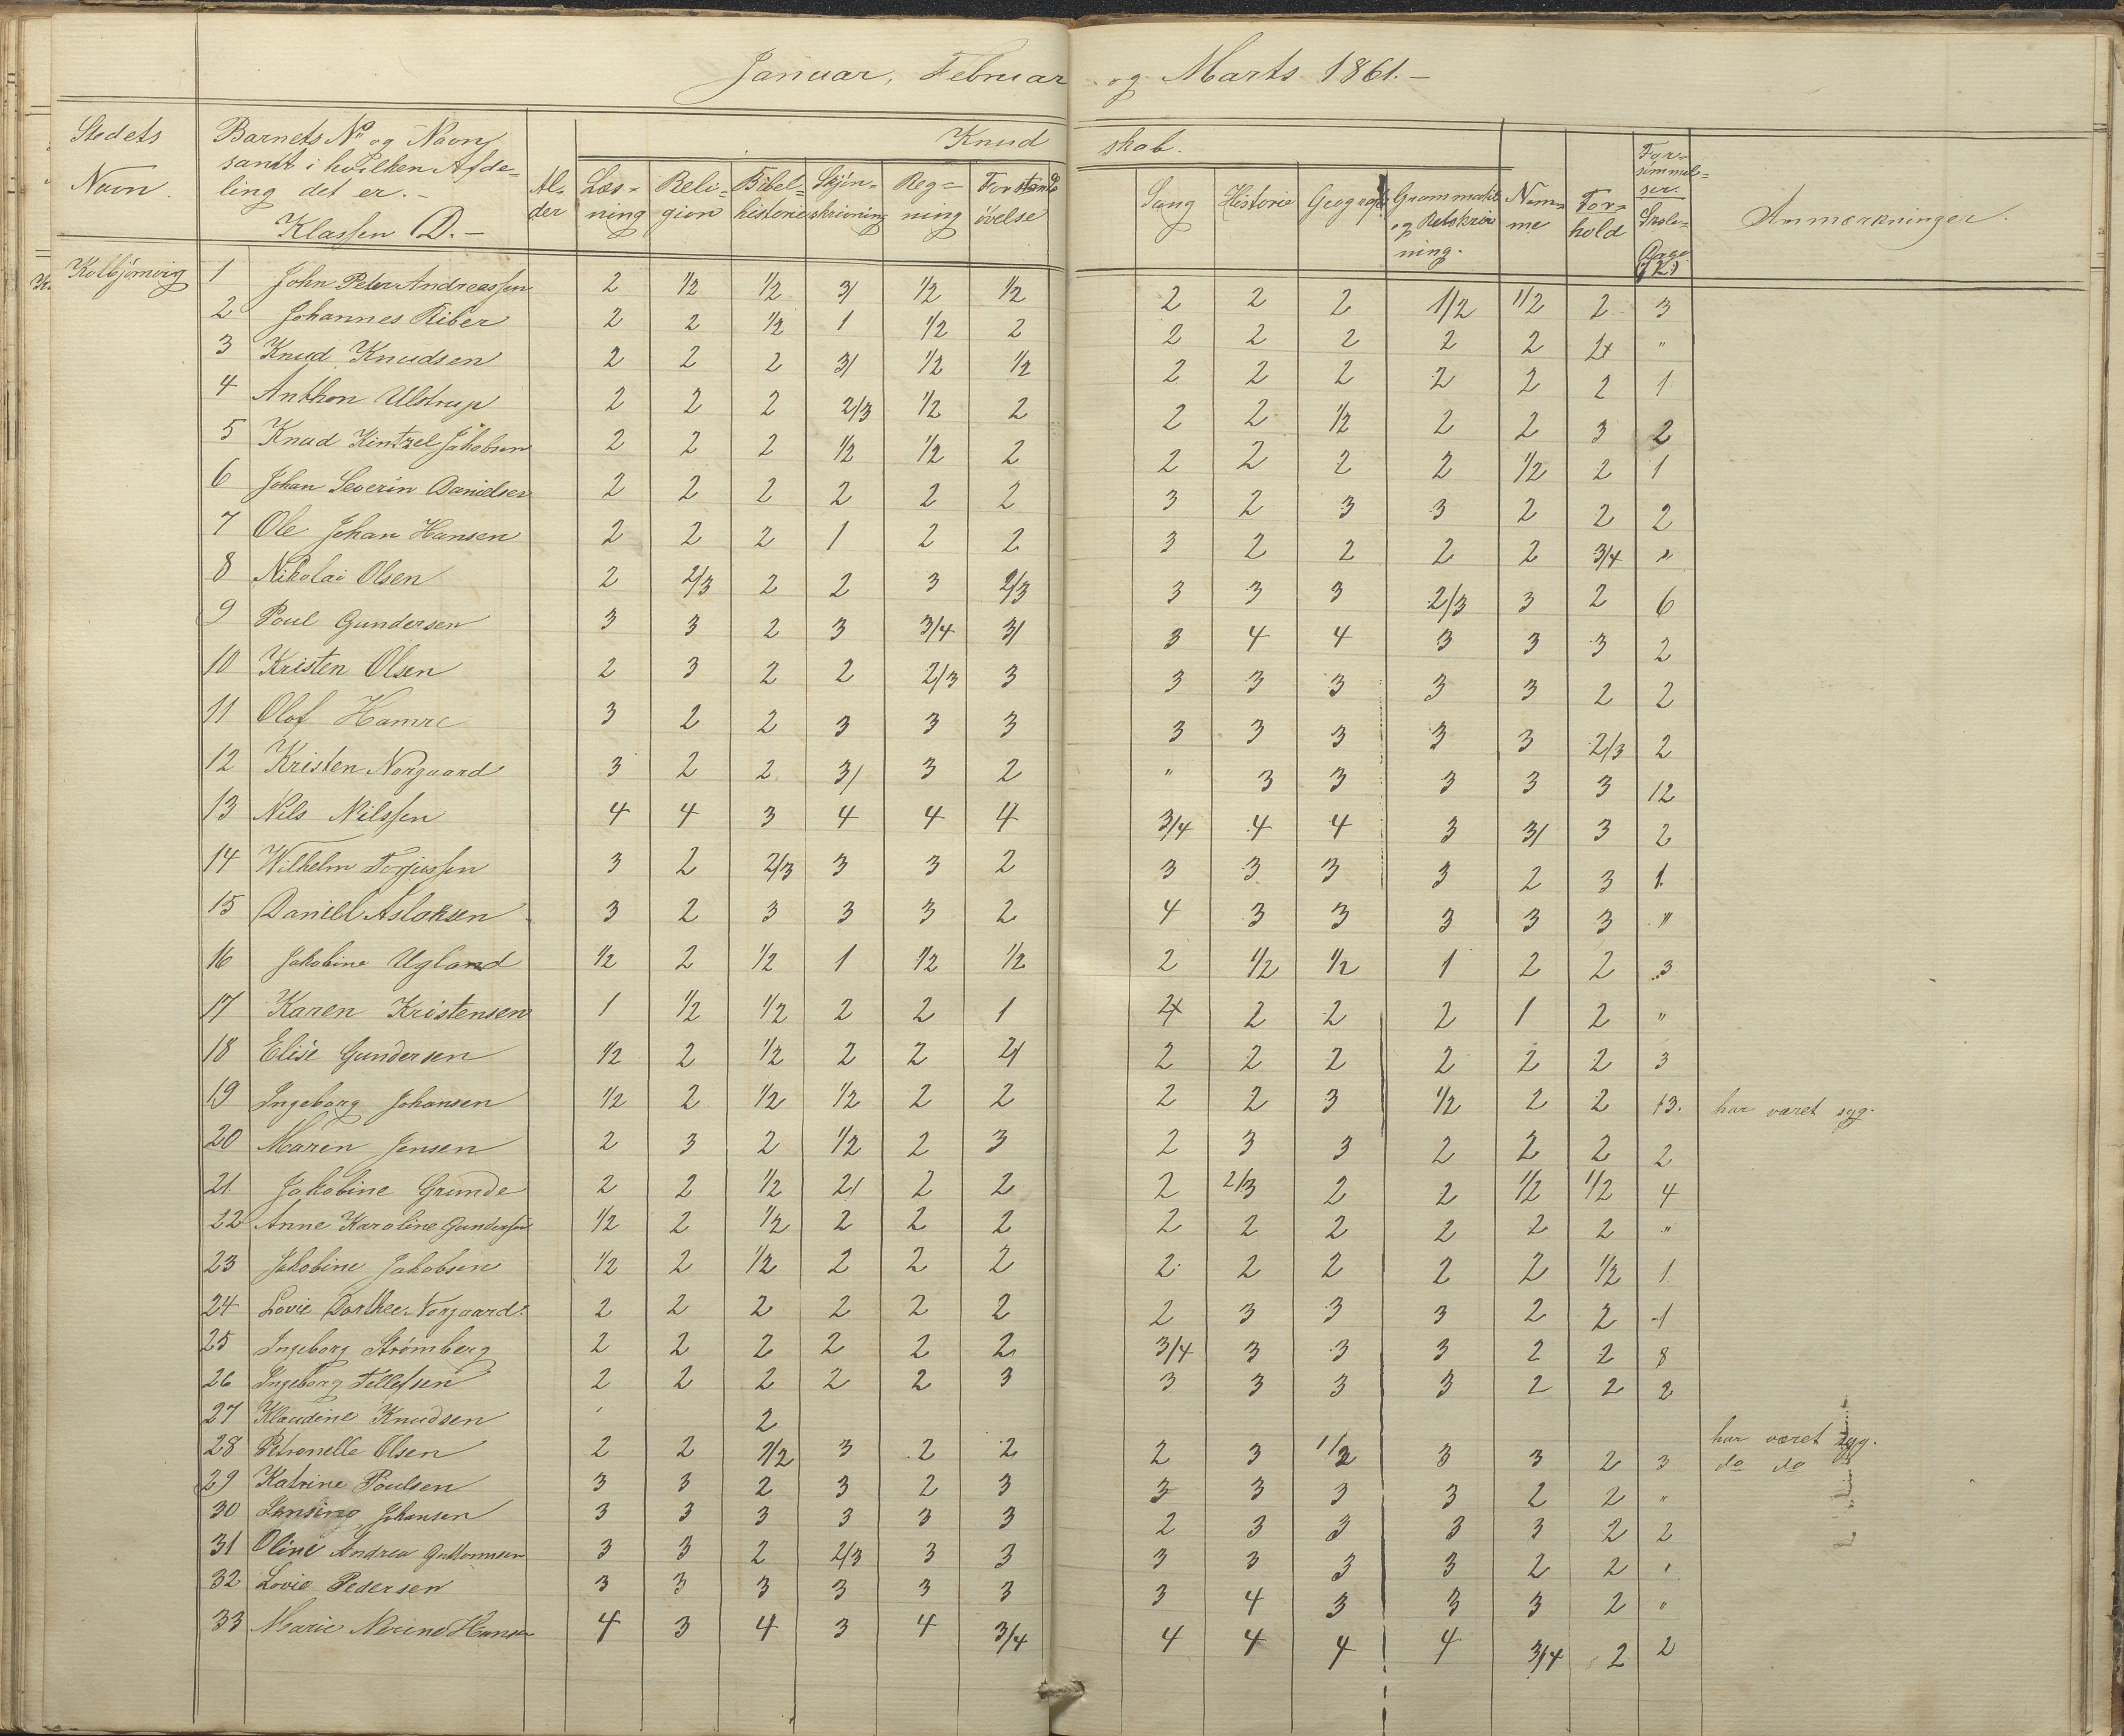 Januar, Februar og Marts 1861.-
Stedets Navn.
Barnets No og Navn
samt i hvilken Afde=
ling det er.-
Klassen D.-
Al=
der
Knud skab.
Læs=
ning
Reli=
gion
Bibel=
historie
Skjøn=
skrivning
Reg=
ning
Forstands
øvelse
Sang
Historie
Geografi
Grammatik
og Retskriv
ning.
Nem=
me
For=
hold
For=
sömmel=
ser.
Skole=
Dage
(72)
Anmærkninger.
Kolbjörnsvig 1 John Peter Andreassen 2 1/2 1/2 3/ 1/2 1/2 2 2 2 1/2 1/2 2 3
2 Johannes Riber 2 2 1/2 1 1/2 2 2 2 2 2 2 2x "
3 Knud Knudsen 2 2 2 3/ 1/2 1/2 2 2 2 2 2 2 1
4 Anthon Ulstrup 2 2 2 2/3 1/2 2 2 2 1/2 2 2 3 2
5 Knud Kintzel Jakobsen 2 2 2 1/2 1/2 2 2 2 2 2 1/2 2 1
6 Johan Severin Danielsen 2 2 2 2 2 2 3 2 3 3 2 2 2
7 Ole Johan Hansen 2 2 2 1 2 2 3 2 2 2 2 3/4 "
8 Nikolai Olsen 2 2/3 2 2 3 2/3 3 3 3 2/3 3 2 6
9 Poul Gundersen 3 3 2 3 3/4 3/ 3 4 4 3 3 3 2
10 Kristen Olsen 2 3 2 2 2/3 3 3 3 3 3 3 2 2
11 Olof Hamre 3 2 2 3 3 3 3 3 3 3 3 2/3 2
12 Kristen Norgaard 3 2 2 3/ 3 2 " 3 3 3 3 3 12
13 Nils Nilssen 4 4 3 4 4 4 3/4 4 4 3 3/ 3 2
14 Wilhelm Torjussen 3 2 2/3 3 3 2 3 3 3 3 2 3 1
15 Daniell Aslaksen 3 2 3 3 3 2 4 3 3 3 3 3 "
16 Jakobine Ugland 1/2 2 1/2 1 1/2 1/2 2 1/2 1/2 1 2 2 3
17 Karen Kristensen 1 1/2 1/2 2 2 1 2x 2 2 2 1 2 "
18 Elise Gundersen 1/2 2 1/2 2 2 2/ 2 2 2 2 2 2 3
19 Ingeborg Johansen 1/2 2 1/2 1/2 2 2 2 2 3 1/2 2 2 13. har været syg.
20 Maren Jensen 2 3 2 1/2 2 3 2 3 3 2 2 2 2
21 Jakobine Grunde 2 2 1/2 2/ 2 2 2 2/3 2 2 1/2 1/2 4
22 Anne Karoline Gundersen 1/2 2 1/2 2 2 2 2 2 2 2 2 2 "
23 Jakobine Jakobsen 1/2 2 1/2 2 2 2 2 2 2 2 2 1/2 1
24 Lovie Dorthee Norgaard 2 2 2 2 2 2 2 3 3 3 2 2 1
25 Ingeborg Strömberg 2 2 2 2 2 2 3/4 3 3 3 2 2 8
26 Ingeborg Tellefsen 2 2 2 2 2 3 3 3 3 3 2 2 2
27 Klaudine Knudsen 2 har været syg.
28 Petronelle Olsen 2 2 3 2 2 2 3 1/2 3 3 2 3 do do
29 Katrine Poulsen 3 3 2 3 2 3 3 3 3 3 2 2 "
30 Johansen 3 3 3 3 3 3 2 3 3 3 3 2 2
31 Oline Andrea Guttormsen 3 3 2 2/3 3 3 3 3 3 3 2 2 "
32 Lovie Pedersen 3 3 3 3 3 3 3 4 3 3 3 2 "
33 Marie Nerine Hansen 4 3 4 3 4 3/4 4 4 4 4 3/4 2 2